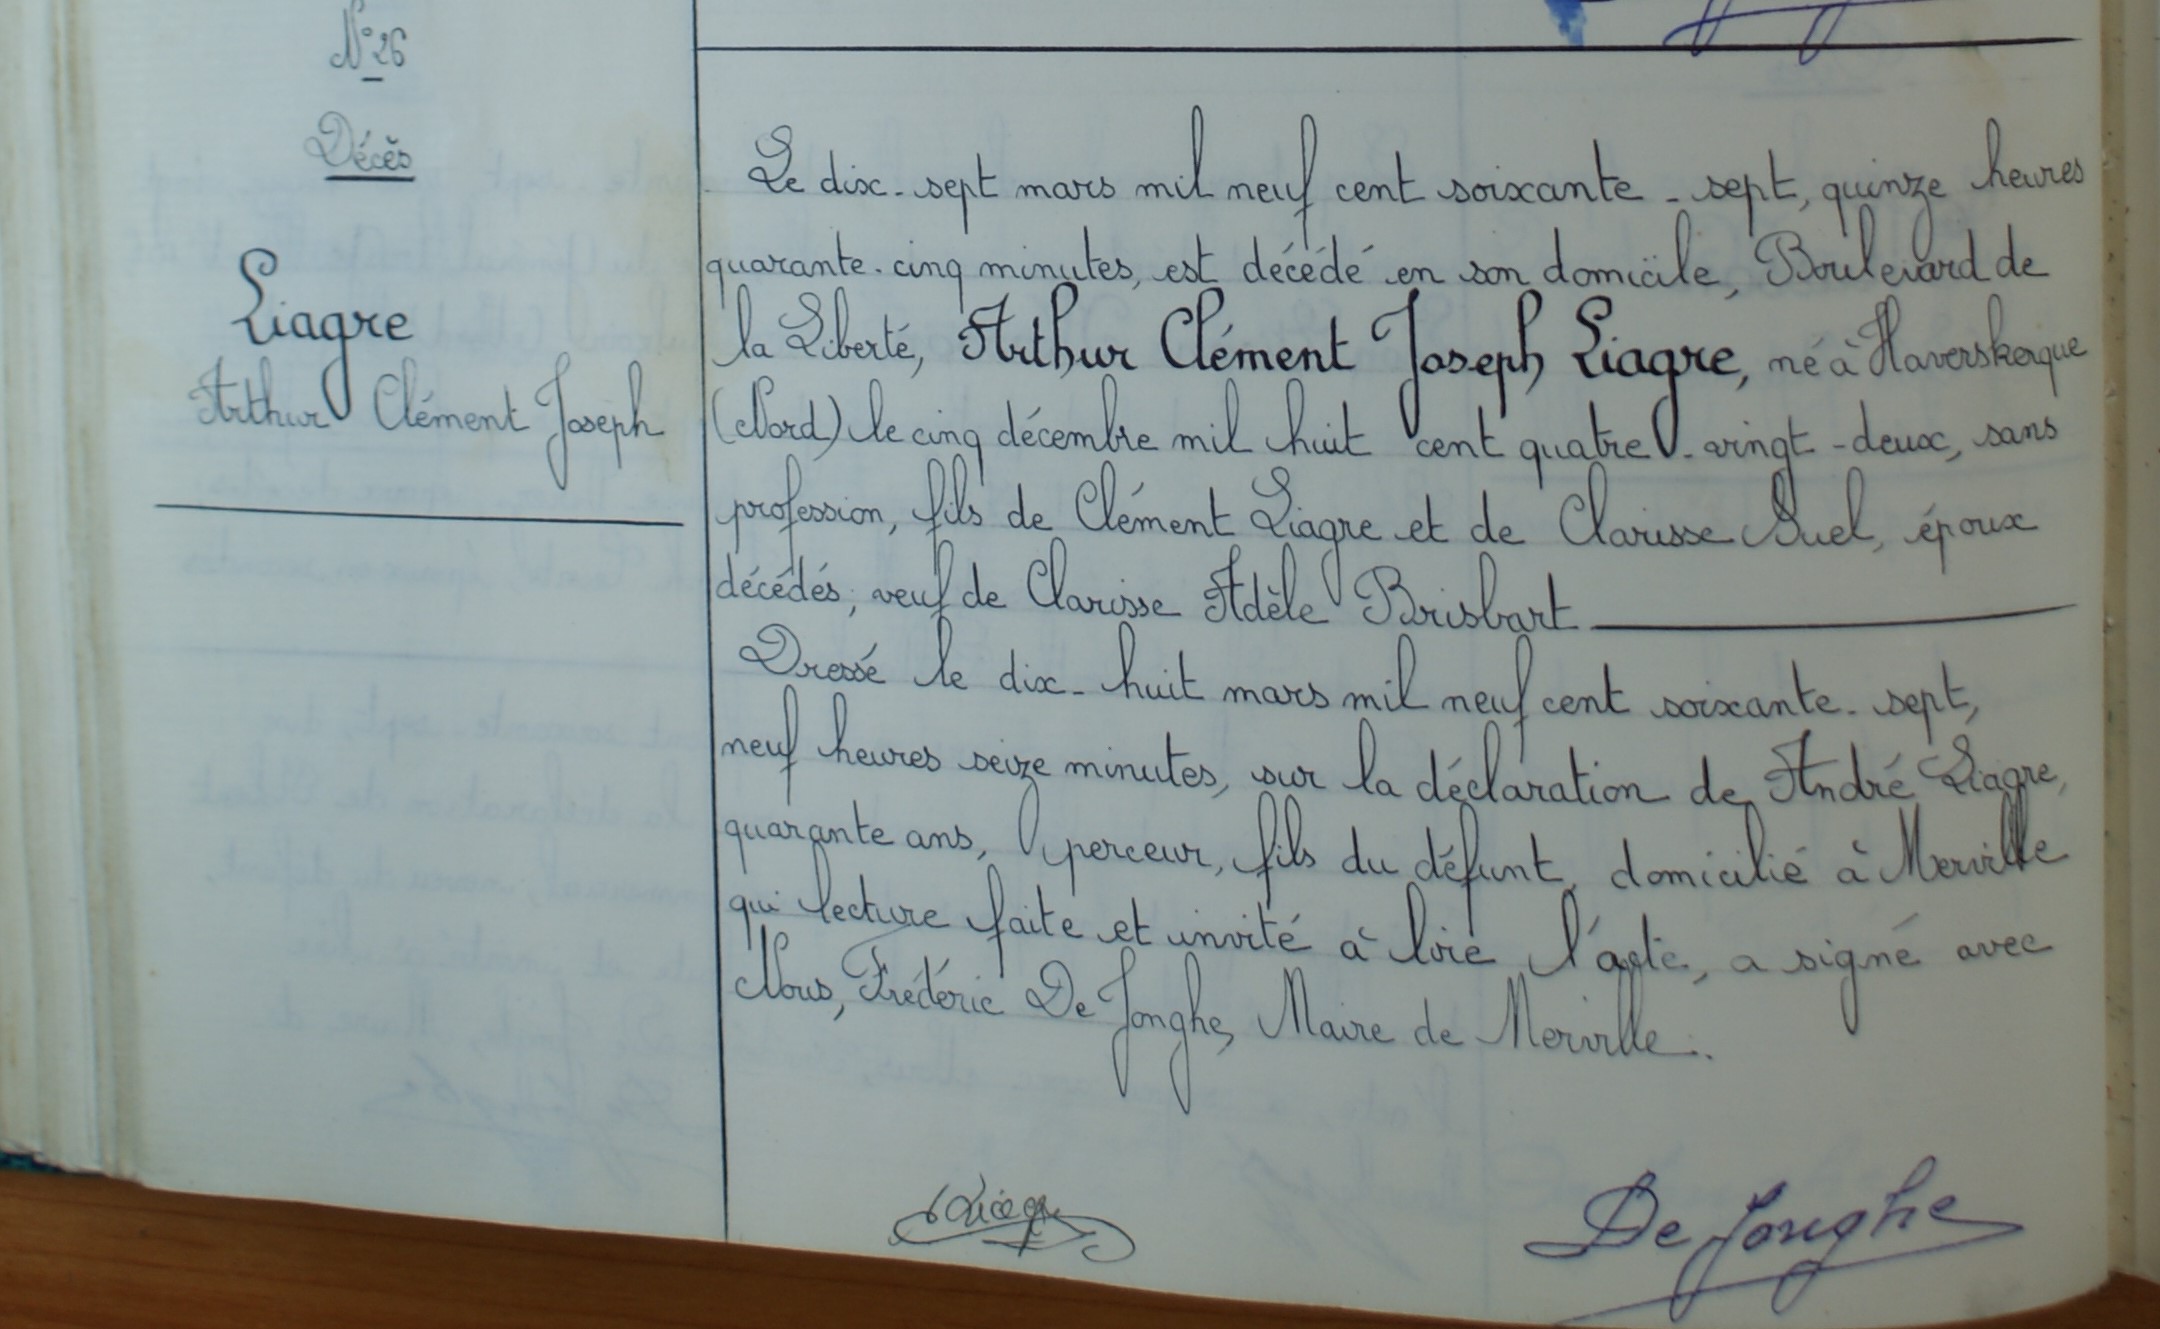 N° 26
Décès
Liagre
Arthur Clément Joseph
Le dix-sept mars mil neuf cent soixante-sept, quinze heures
quarante-cinq minutes, est décédé en son domicile, Boulevard de
la Liberté, Arthur Clément Joseph Liagre, né à Haverskerque
(Nord) le cinq décembre mil huit cent quatre-vingt-deux, sans
profession, fils de Clément Liagre et de Clarisse Buel, époux
décédés, veuf de Clarisse Adèle Brisbart
Dressé le dix-huit mars mil neuf cent soixante-sept,
neuf heures seize minutes, sur la déclaration de André Liagre,
quarante ans, perceur, fils du défunt, domicilié à Merville
qui lecture faite et invité à lire l'acte, a signé avec
Nous, Frédéric De Jonghe, Maire de Merville.
De Jonghe